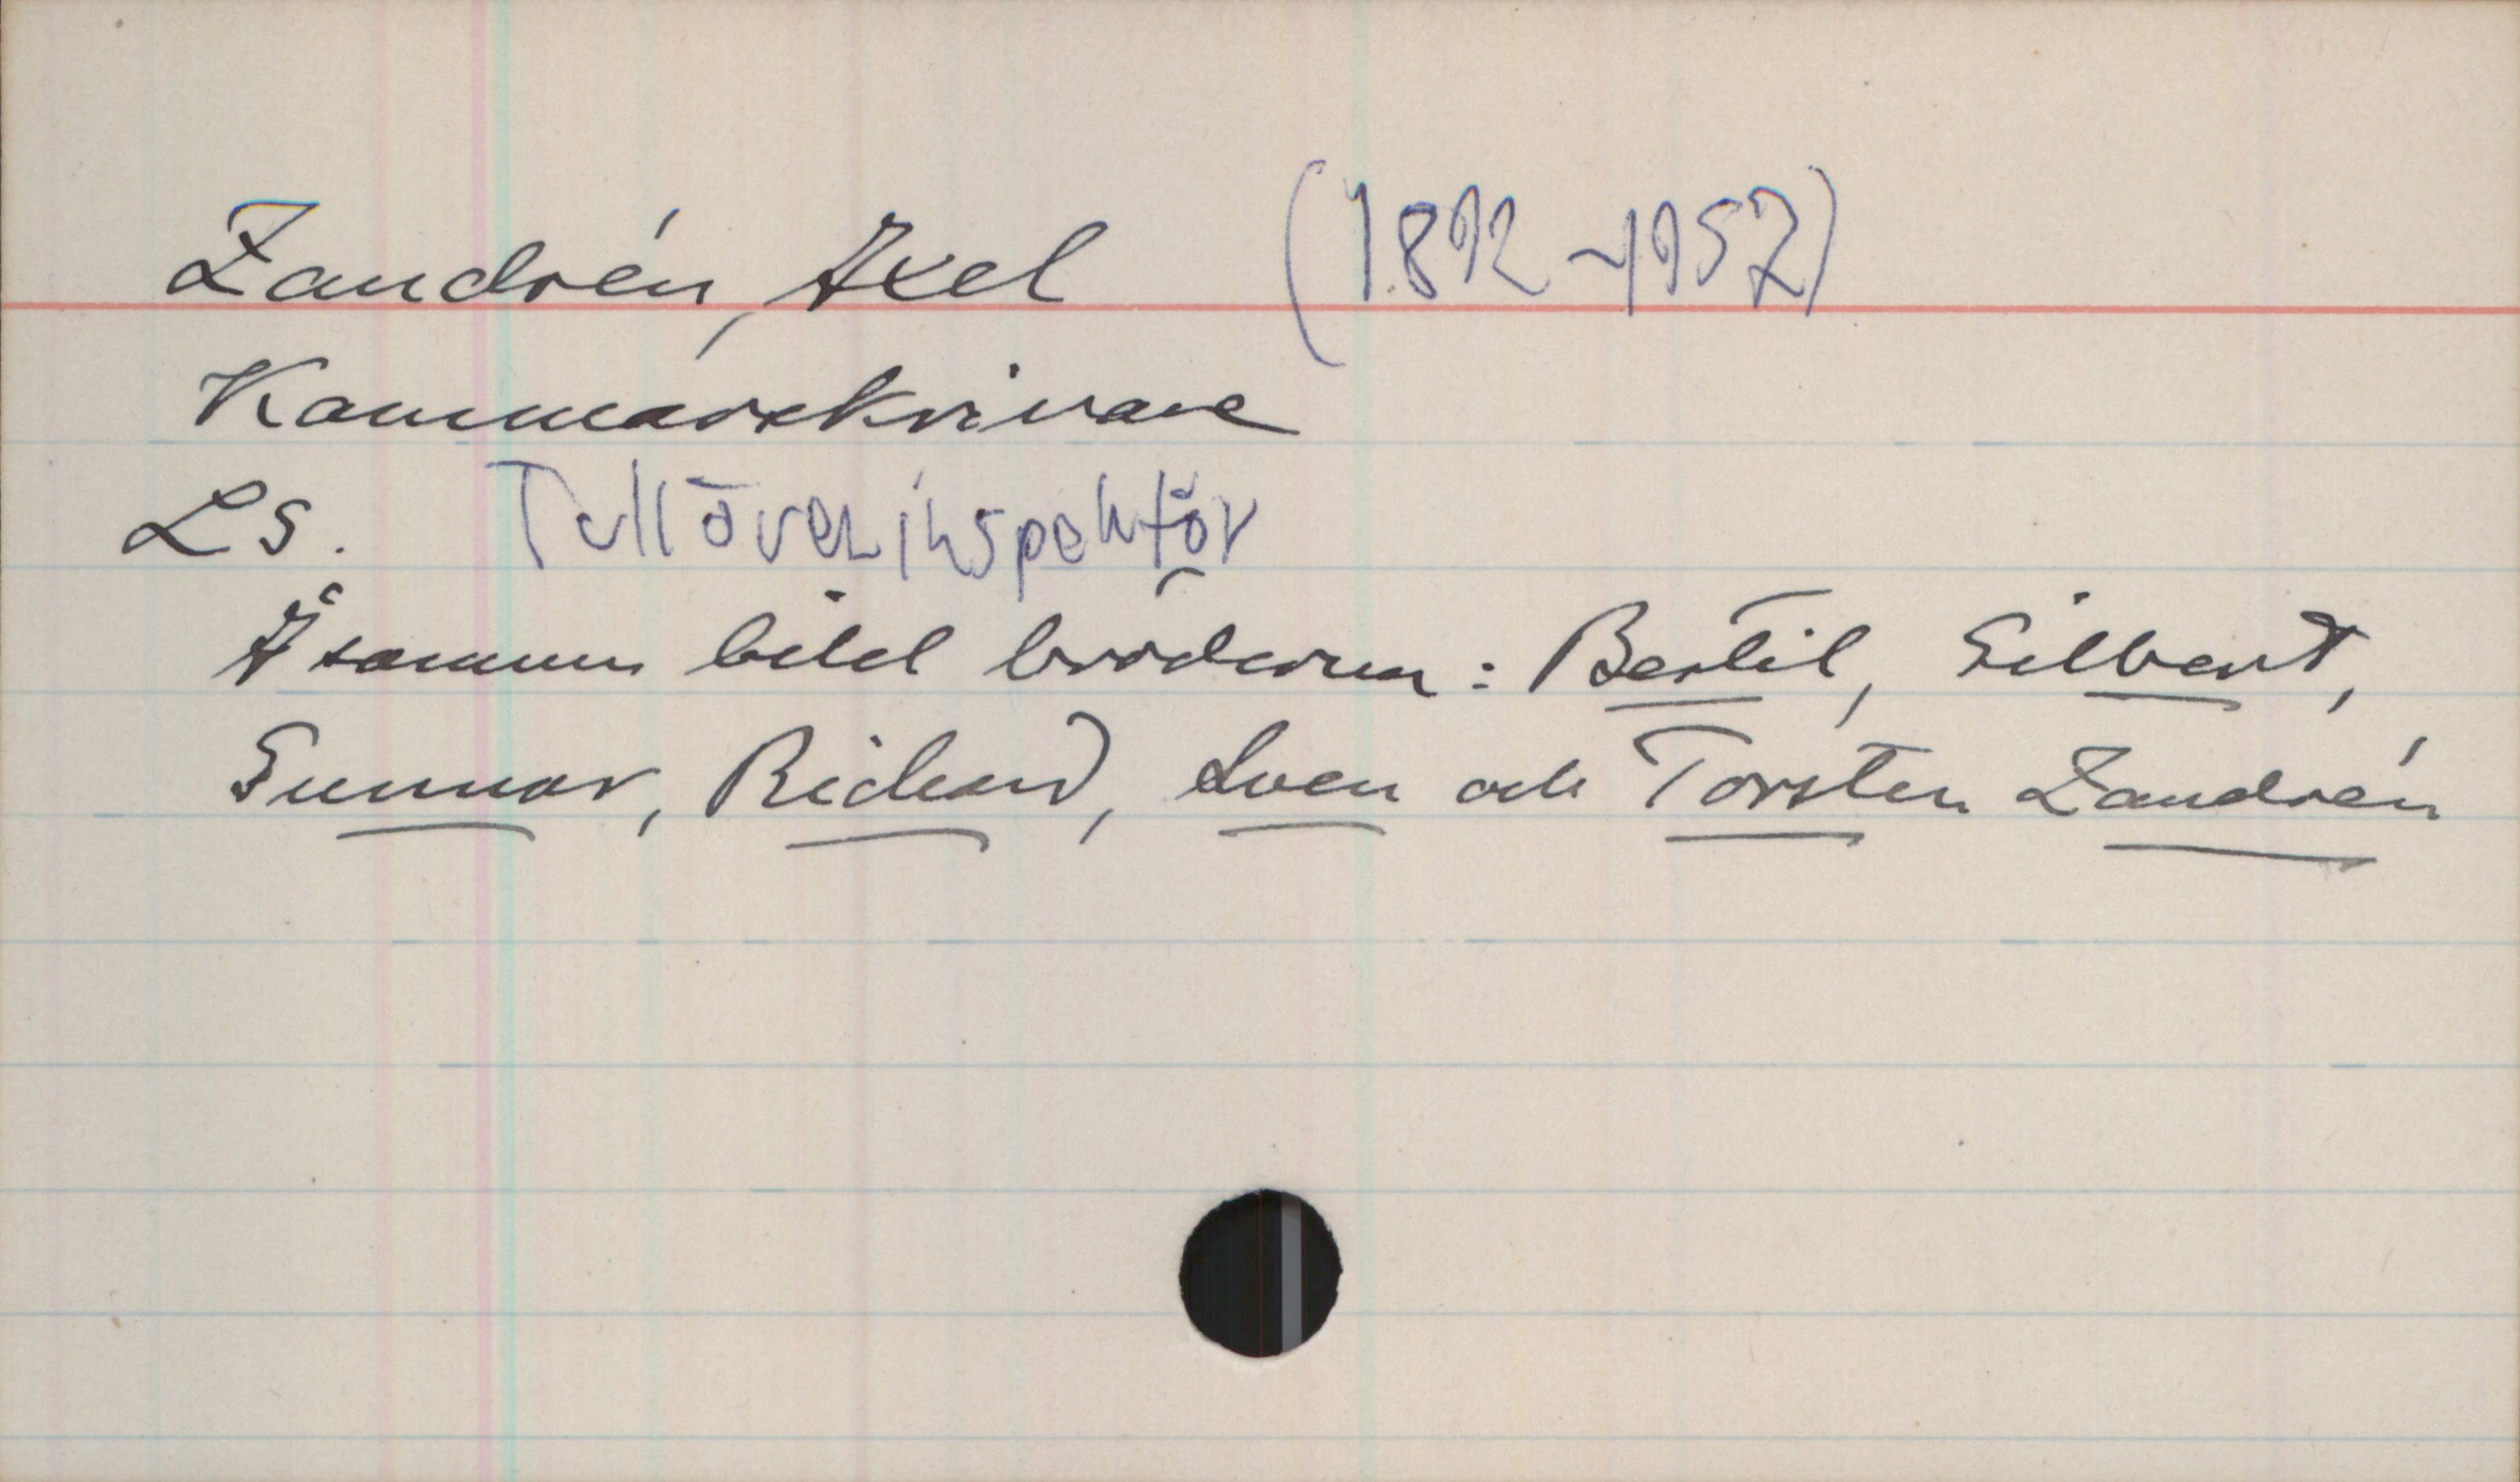 Zandrén, Axel (1892-1957)
Kammarskrivare
Ls. Tullöverinspektör
Å samma bild bröderna: Bertil, Gilbert,
Gunnar, Richard, Sven och Torsten Zandrén